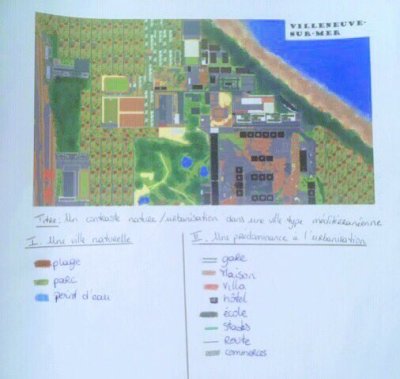 VILLENEUVE-
SUR-MER
Titre: Un contraste nature/urbanisation dans une ville type méditerranéenne
I. Une ville naturelle
plage
parc
point d'eau
II. Une prédominance à l'urbanisation
gare
Maison
villa
hôtel
école
stades
Route
commerces